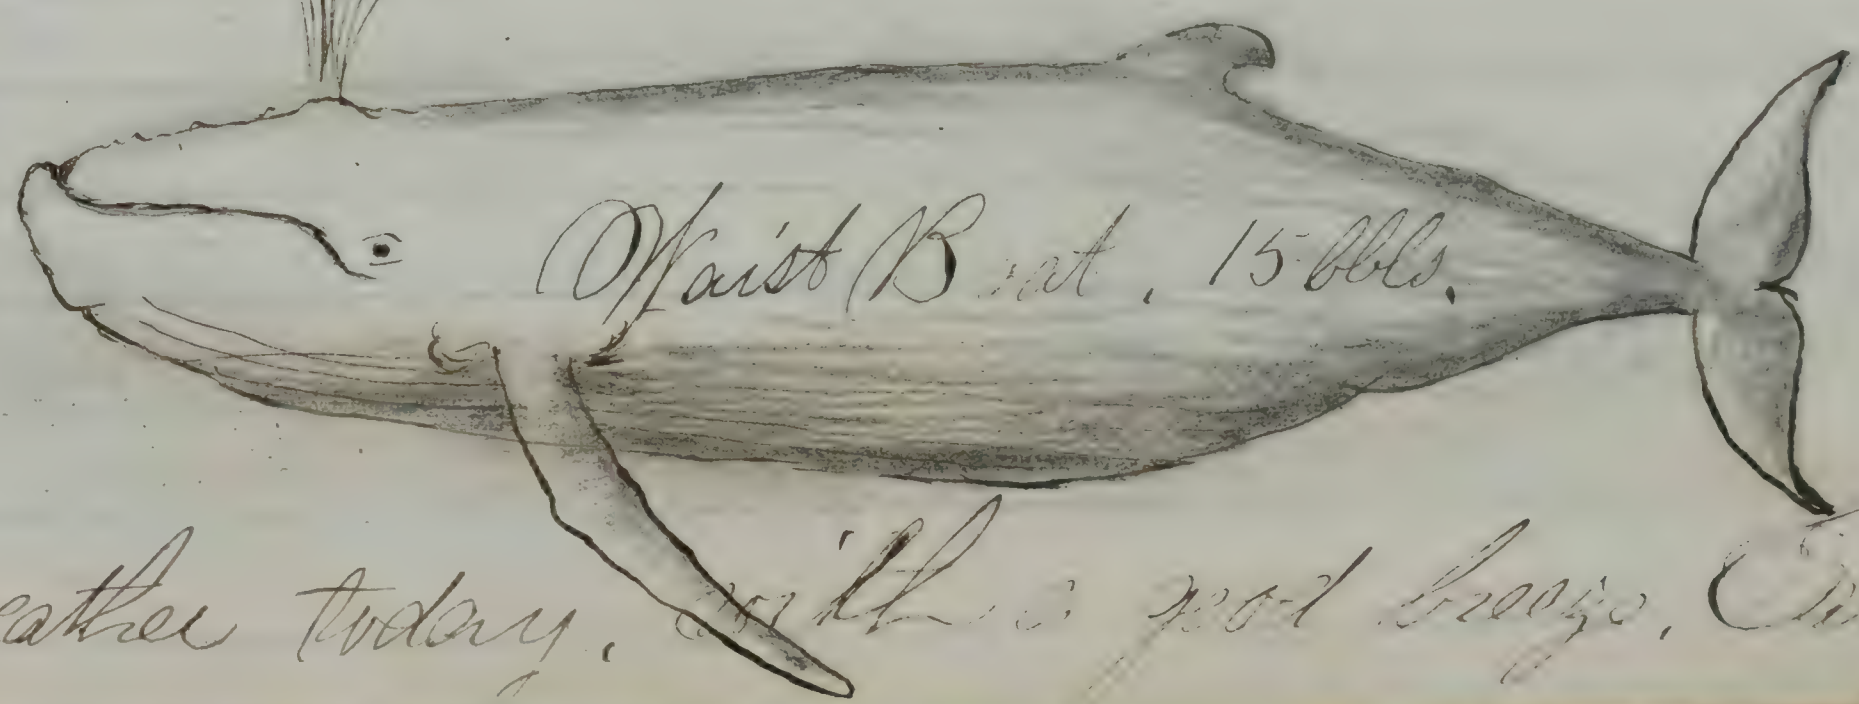 Waist Boat. 15 bbls.
eather today. with a good breeze.